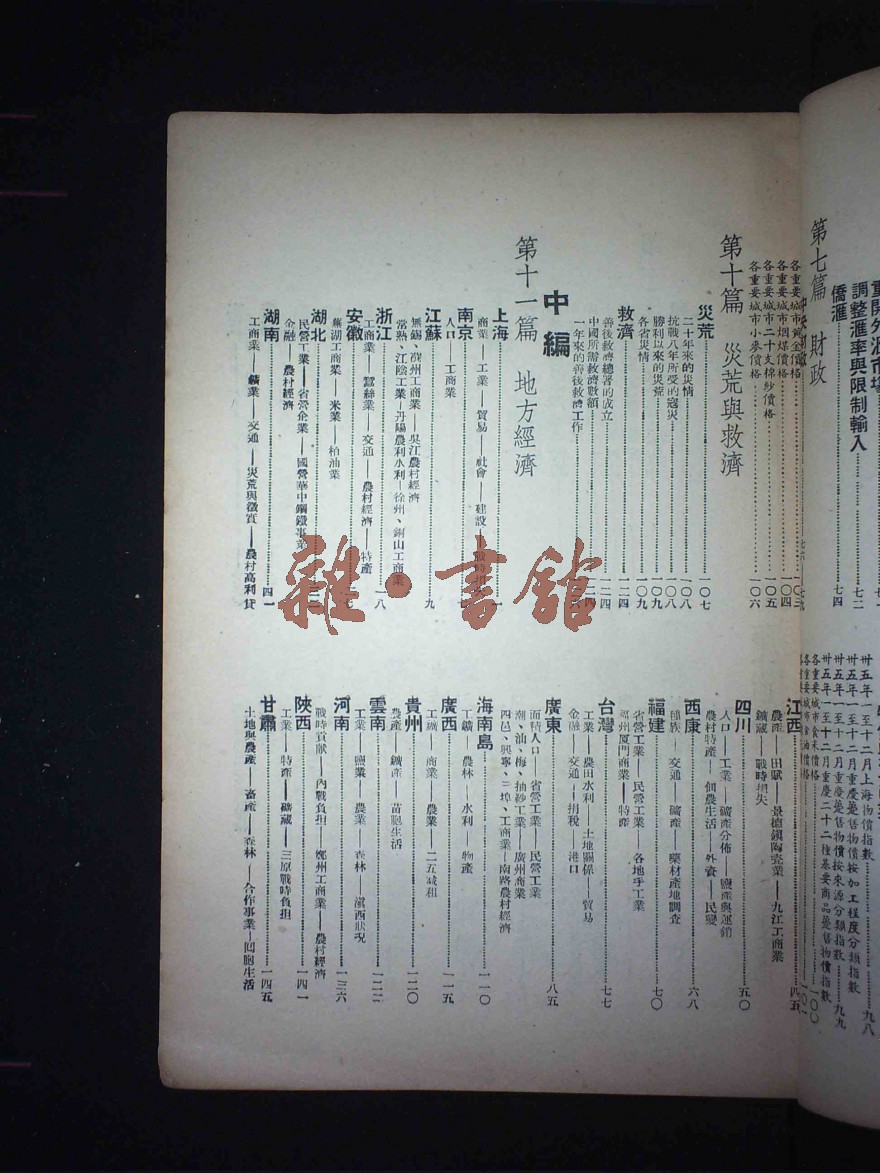 重開外滙市場
調整滙率與限制輸入⋯⋯七二
僑滙⋯⋯七四
第七篇 財政
卅五年一至十二月上海物價指數
卅五年一至十二月重慶躉售物價按加工程度分類指數⋯⋯九八
卅五年一至十二月重慶躉售物價按來源分類指數⋯⋯九九
卅五年一至十二月重慶二十二種基要商品躉售物價指數
各重要城市食米價格⋯⋯一〇〇
各重要城市食油價格
各重要城市黃金價格⋯⋯一〇三
各重要城市烟煤價格⋯⋯一〇四
各重要城市二十支棉紗價格⋯⋯一〇五
各重要城市小麥價格⋯⋯一〇六
第十篇 災荒與救濟
災荒⋯⋯一〇七
二十年來的災情⋯⋯一〇八
抗戰八年所受的寇災⋯⋯一〇八
勝利以來的災荒⋯⋯一〇九
各省災情⋯⋯一〇九
救濟⋯⋯一二四
善後救濟總署的成立⋯⋯一二四
中國所需救濟數額⋯⋯一二四
一年來的善後救濟工作⋯⋯一二六
中編
第十一篇 地方經濟
上海⋯⋯一
商業—工業—貿易—社會—建設—戰時損失
南京
人口—工商業
江蘇⋯⋯九
無錫、濮州工商業—吳江農村經濟
常熟、江陰工業—丹陽農村水利—徐州、銅山工商業
浙江⋯⋯一八
工商業—蠶絲業—交通—農村經濟—特產
安徽
蕪湖工商業—米業—柏油業
湖北
民營工業—省營企業—國營華中鋼鐵事業
金融—農村經濟
湖南⋯⋯四一
工商業—鑛業—交通—災荒與徵實—農村高利貸
江西⋯⋯四五
農產—田賦—景德鎮陶瓷業—九江工商業
鑛藏—戰時損失
四川⋯⋯五〇
人口—工業—鑛產分佈—鹽產與運銷
農村特產—佃農生活—外資—民變
西康⋯⋯六八
種族—交通—鑛產—藥材產地調查
福建⋯⋯七〇
省營工業—民營工業—各地手工業
福州廈門商業—特產
台灣⋯⋯七七
工業—農田水利—土地關係—貿易
金融—交通—捐稅—港口
廣東⋯⋯八五
面積人口—省營工業—民營工業
潮、汕、梅、抽紗工業—廣州商業
四邑、興寧、三埠、工商業—南路農村經濟
海南島⋯⋯一一〇
工鑛—農林—水利—物產
廣西⋯⋯一一五
工鑛—商業—農業—二五減租
貴州⋯⋯一二〇
農產—鑛產—苗胞生活
雲南⋯⋯一二二
工業—鹽業—農業—森林—滇西狀況
河南⋯⋯一三六
戰時貢獻—內戰負担—鄭州工商業—農村經濟
陝西⋯⋯一四一
工業—特產—礦藏—三原戰時負担
甘肅⋯⋯一四五
土地與農產—畜產—森林—合作事業—回胞生活
雜·書館